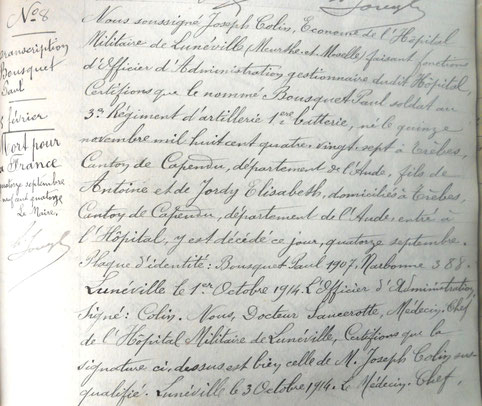 N° 8
Transcription
Bousquet
Paul
février
Mort pour
la France
quatorze septembre
mil neuf quatorze
Le Maire,
Nous soussigné Joseph Colin, Econome de l'Hôpital
Militaire de Lunéville (Meurthe-et-Moselle) faisant fonctions
d'Officier d'Administration gestionnaire dudit Hôpital,
Certifions que le nommé Bousquet Paul soldat au
3e Régiment d'artillerie 1ère batterie, né le quinze
novembre mil huit cent quatre vingt-sept à Trèbes,
Canton de Capendu, département de l'Aude, fils de
Antoine et de Jordy Elisabeth, domiciliés à Trèbes,
Canton de Capendu, département de l'Aude, entré à
l'Hôpital, y est décédé ce jour, quatorze septembre.
Plaque d'identité: Bousquet Paul 1907. Narbonne 388.
Lunéville le 1er Octobre 1914. L'Officier d'Administration,
Signé: Colin. Nous, Docteur Saucerotte, Médecin-Chef
de l'Hôpital Militaire de Lunéville, Certifions que la
signature ci-dessus est bien celle de M. Joseph Colin sus
qualifié. Lunéville le 3 Octobre 1914. Le Médecin-Chef,